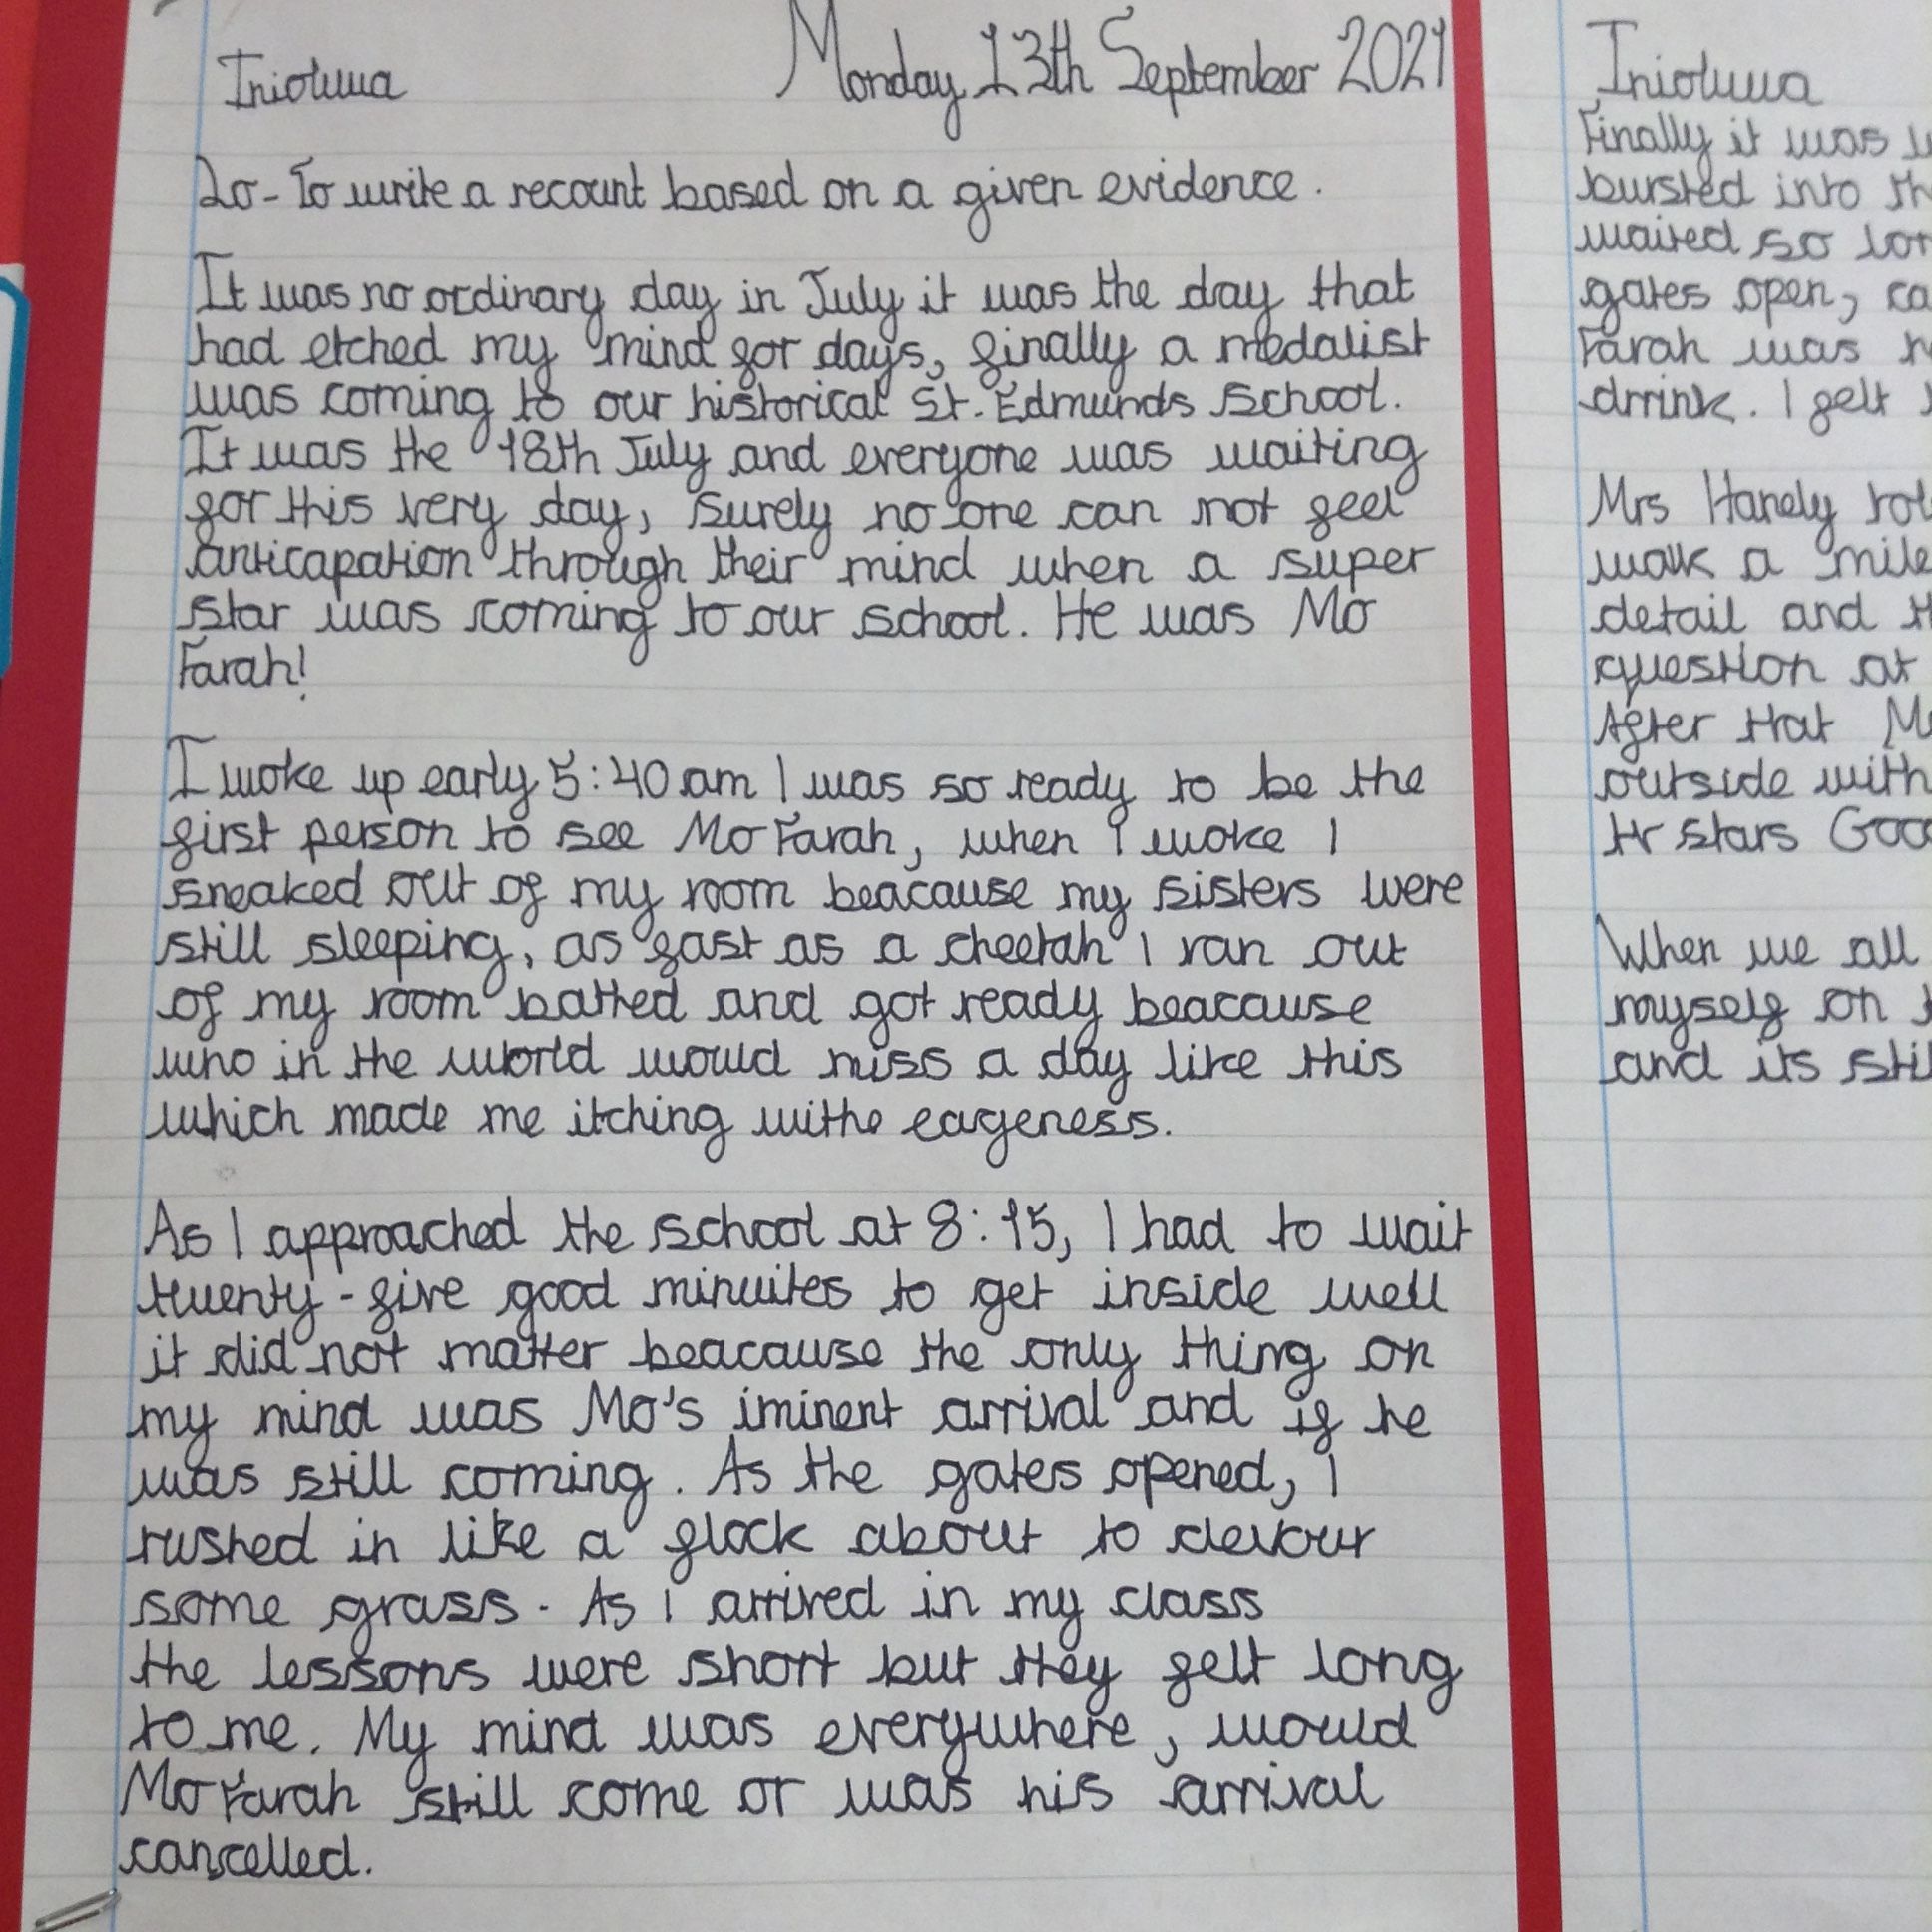 Inioluwa
Monday 13th September 2021
Lo - To write a recount based on a given evidence.
It was no ordinary day in July it was the day that
had etched my mind for days, finally a medalist
was coming to our historical St. Edmunds School.
It was the 18th July and everyone was waiting
for this very day, surely no one can not feel
anticapation through their mind when a super
star was coming to our school. He was Mo
Farah!
I woke up early 5:40 am I was so ready to be the
first person to see Mo Farah, when I woke I
sneaked out of my room beacause my sisters were
still sleeping, as fast as a cheetah I ran out
of my room bathed and got ready beacause
who in the world would miss a day like this
which made me itching withe eageness.
As I approached the school at 8:15, I had to wait
twenty-five good minuites to get inside well
it did not matter beacause the only thing on
my mind was Mo's iminent arrival and if he
was still coming. As the gates opened, I
rushed in like a flock about to devour
some grass. As I arrived in my class
the lessons were short but they felt long
to me. My mind was everywhere, would
Mo Farah still come or was his arrival
cancelled.
Inioluwa
Finally it was
bursted into
waited so
gates open,
Farah was
drrink. I felt
Mrs Hanely
walk a mile
detail and
question at
After that
outside with
Hr stars
When we all
myself on
and its